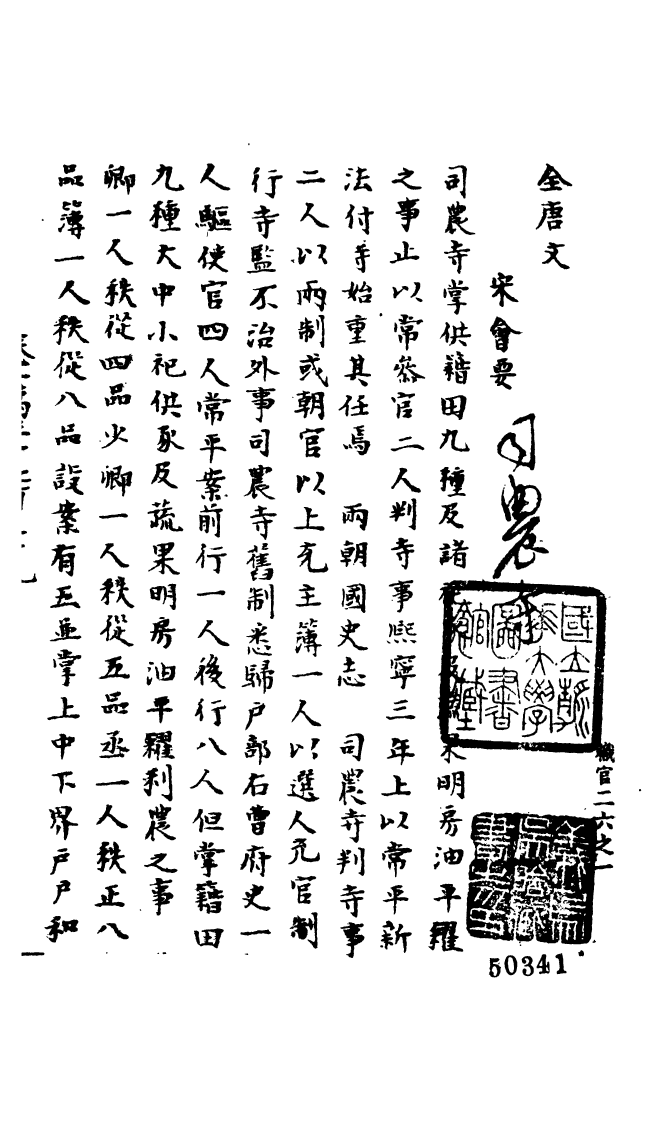 全唐文
宋會要
司農寺
職官二六之一
司農寺掌供籍田九種及諸果明房油平糴
之事止以常叅官二人判寺事熙寧三年上以常平新
法付寺始重其任焉 兩朝國史志 司農寺判寺事
二人以兩制或朝官以上充主簿一人以選人充官制
行寺監不治外事司農寺舊制悉歸戶部右曹府史一
人驅使官四人常平案前行一人後行八人但掌籍田
九種大中小祀供豕及蔬果明房油平糴利農之事
卿一人秩從四品少卿一人秩從五品丞一人秩正八
品簿一人秩從八品設案有五並掌上中下界戶戶和
國立
大學
圖書
館藏
50341